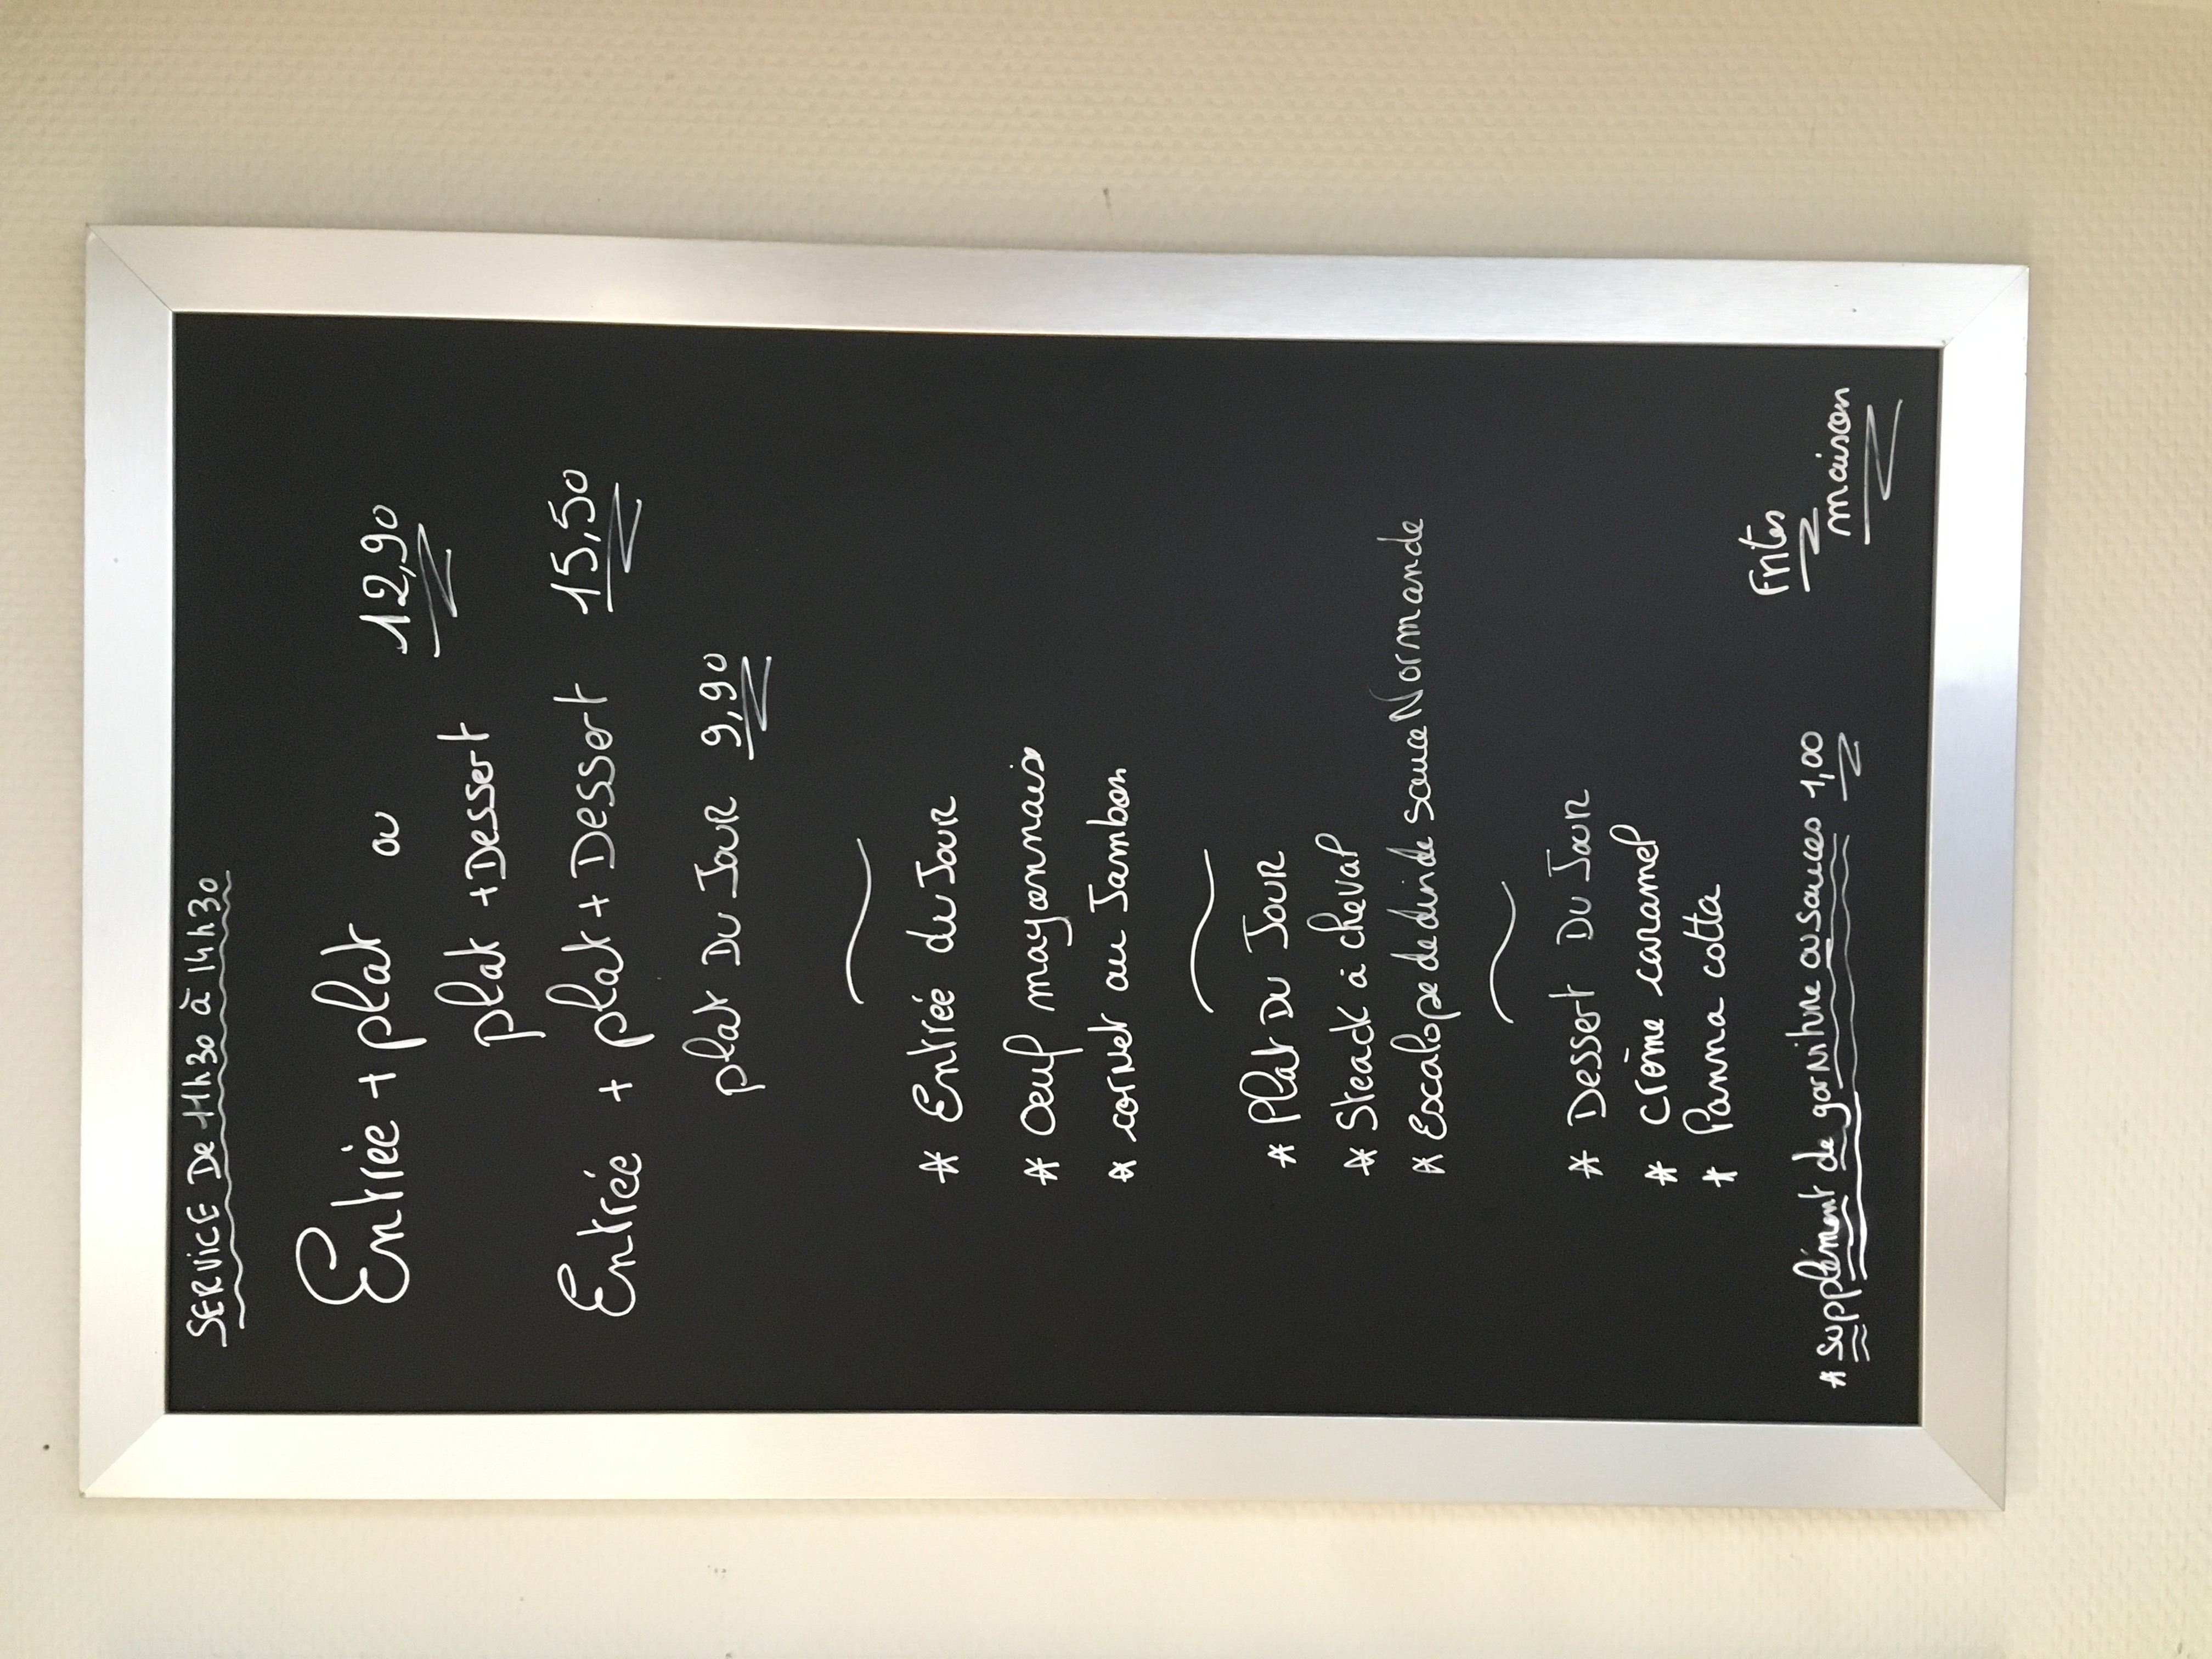 SERVICE De 11h30 à 14h30
Entrée + plat ou 12,90
plat + Dessert
Entrée + plat + Dessert 15,50
plat Du Jour 9,90
* Entrée du Jour
* Oeuf mayonnais
* cornet au Jambon
* Plat Du Jour
* Steack à cheval
* Escalope de dinde sauce Normande
* Dessert Du Jour
* Crème caramel
* Panna cotta
Frites
maison
* Supplément de garniture ou sauces 1,00